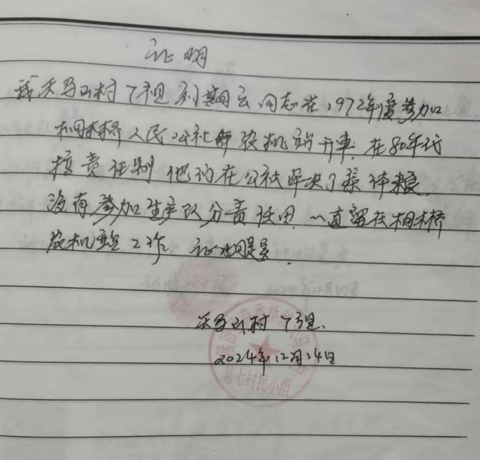 证明
我天马山村7组刘朝云同志在1972年度参加
相木桥人民公社 农机站开车. 在80年代
按责任制 他们在公社解决了 粮.
没有参加生产队分责任田. 一直留在相木桥
农机站工作 证明
天马山村 7组.
2024年12月14日
第七村民小组